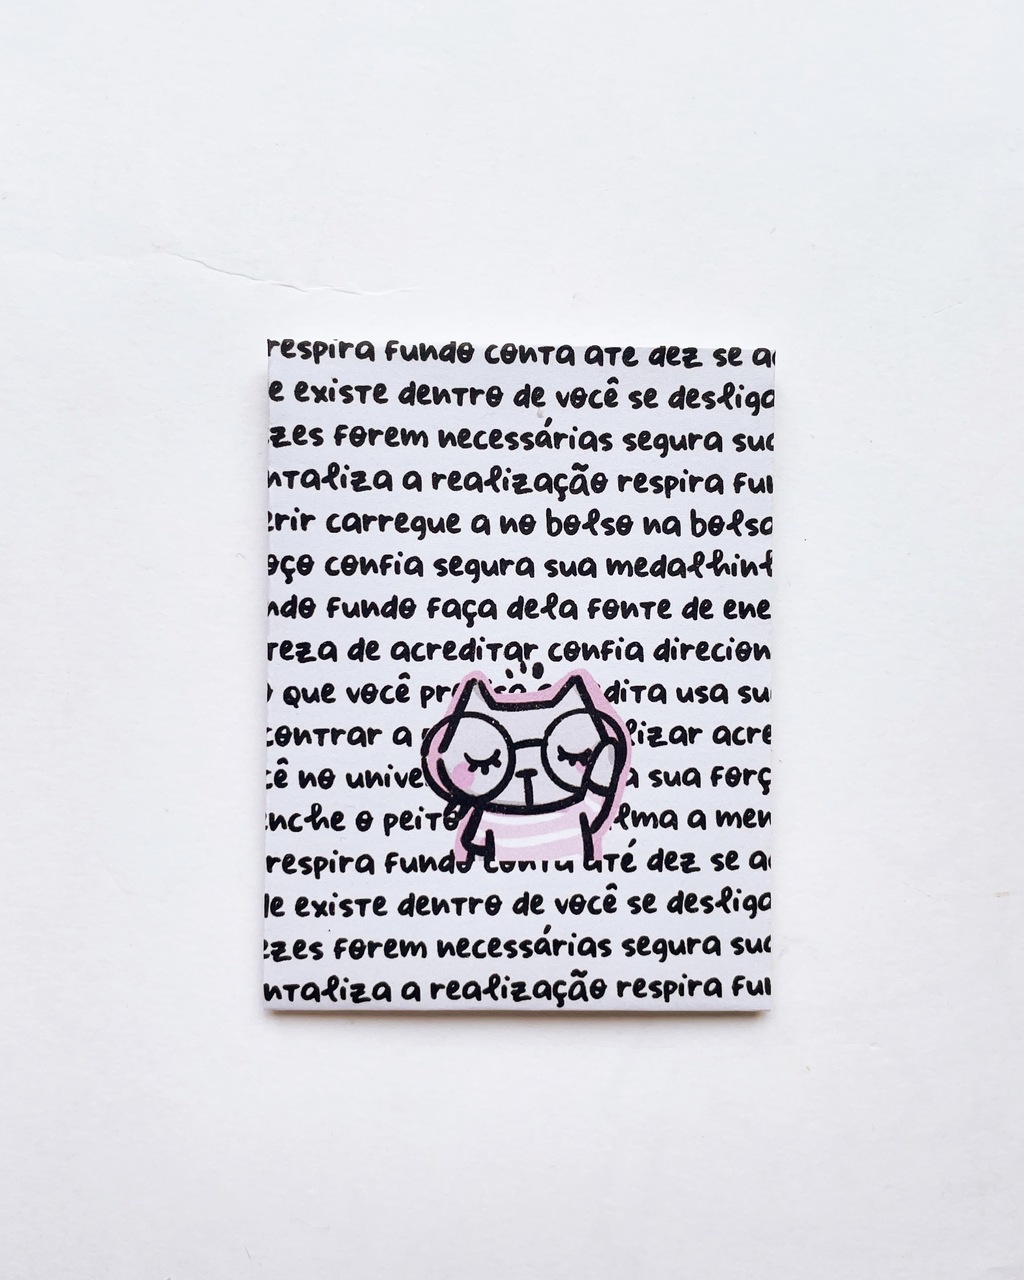 respira fundo conta ate dez se a
e existe dentro de você se desliga
zes forem necessárias segura sua
ntaliza a realização respira fun
erir carregue a no bolso na bolsa
oço confia segura sua medalhinh
ndo fundo faça dela fonte de ene
reza de acreditar confia direcion
o que você pr dita usa su
contrar a lizar acre
cê no unive a sua forç
enche o peito lma a men
respira fundo conta até dez se a
le existe dentro de você se desliga
ezes forem necessárias segura sua
ntaliza a realização respira fun